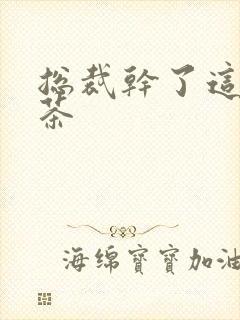 総裁幹了這
茶
海绵寶寶加油